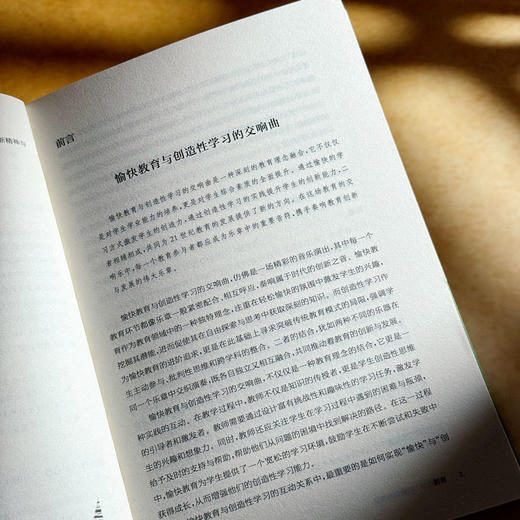 新精神与
前言
愉快教育与创造性学习的交响曲
愉快教育与创造性学习的交响曲是一种深刻的教育理念融合，它不仅仅
是对学生学业能力的培养，更是对学生综合素质的全面提升。通过愉快的学
习方式激发学生的创造力，通过创造性学习的实践提升学生的创新能力，二
者相辅相成，共同为21世纪教育的发展提供了新的方向。在这场教育的交
响乐中，每一个教育参与者都应成为乐章中的重要音符，携手奏响教育创新
与发展的伟大乐章。
愉快教育与创造性学习的交响曲，仿佛是一场精彩的音乐演出，其中每一个
教育环节都像乐章一般紧密配合，相互呼应，奏响属于时代的创新之音。愉快教
育作为教育领域中的一种独特理念，注重在轻松愉快的氛围中激发学生的兴趣，
挖掘其潜能，进而促使其在自由探索与思考中获取深刻的知识。而创造性学习作
为愉快教育的进阶追求，更是在此基础上寻求突破传统教育模式的局限，强调学
生主动参与、批判性思维和跨学科的整合。二者的结合，犹如两种不同的乐器在
同一个乐章中交织演奏，既各自独立又相互融合，共同推动着教育的创新与发展。
愉快教育与创造性学习的交响曲，不仅仅是一种教育理念的结合，它更是一
种实践的互动。在教学过程中，教师不仅是知识的传授者，更是学生创造性思维
的引导者和激发者。教师需要通过设计富有挑战性和趣味性的学习任务，激发学
生的兴趣和想象力。同时，教师还应关注学生在学习过程中遇到的困难与瓶颈，
给予及时的支持与帮助，帮助他们从问题的困境中找到解决的路径。在这一过程
中，愉快教育为学生提供了一个宽松的学习环境，鼓励学生在不断尝试和失败中
获得成长，从而增强他们的创造性学习能力。
愉快教育与创造性学习的互动关系中，最重要的是如何实现“愉快”与“创
前言 1